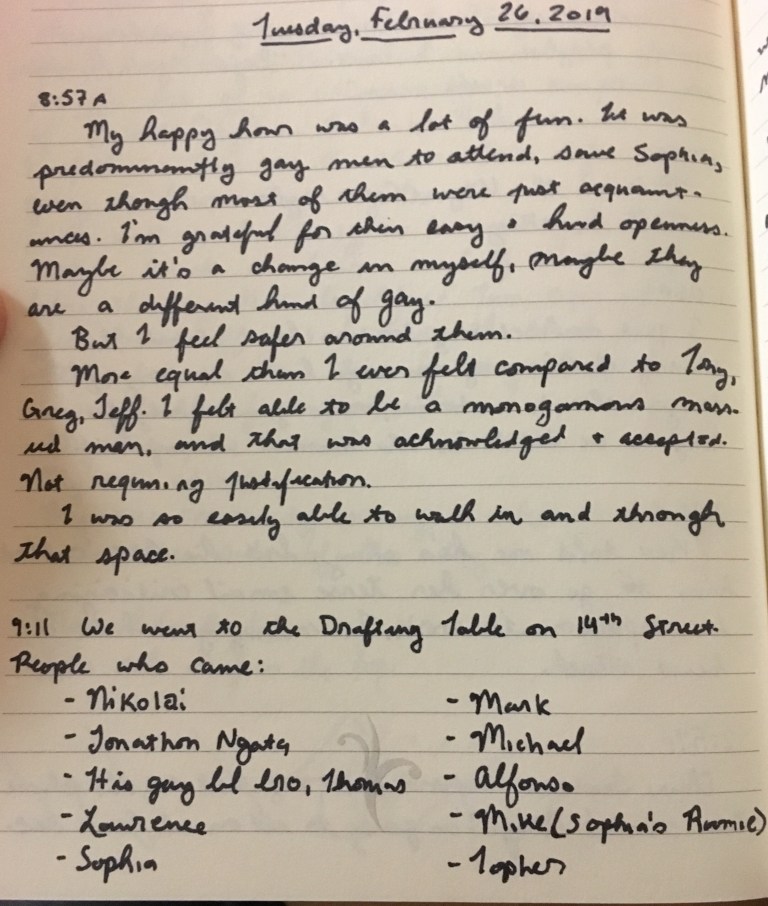 Tuesday, February 26, 2019
8:57 A
My happy hour was a lot of fun. It was
predominantly gay men to attend, save Sophia,
even though most of them were just acquaint-
ances. I'm grateful for their easy & kind openness.
Maybe it's a change in myself, maybe they
are a different kind of gay.
But I feel safer around them.
More equal than I ever felt compared to Tony,
Greg, Jeff. I felt able to be a monogamous marr-
ied man, and that was acknowledged & accepted.
Not requiring justification.
I was so easily able to walk in and through
that space.
9:11 We went to the Drafting Table on 14th Street.
People who came:
- Nikolai
- Mark
- Jonathon Ngata
- Michael
- His gay lil bro, Thomas
- Alfonso
- Lawrence
- Mike (Sophia's Roomie)
- Sophia
- Topher